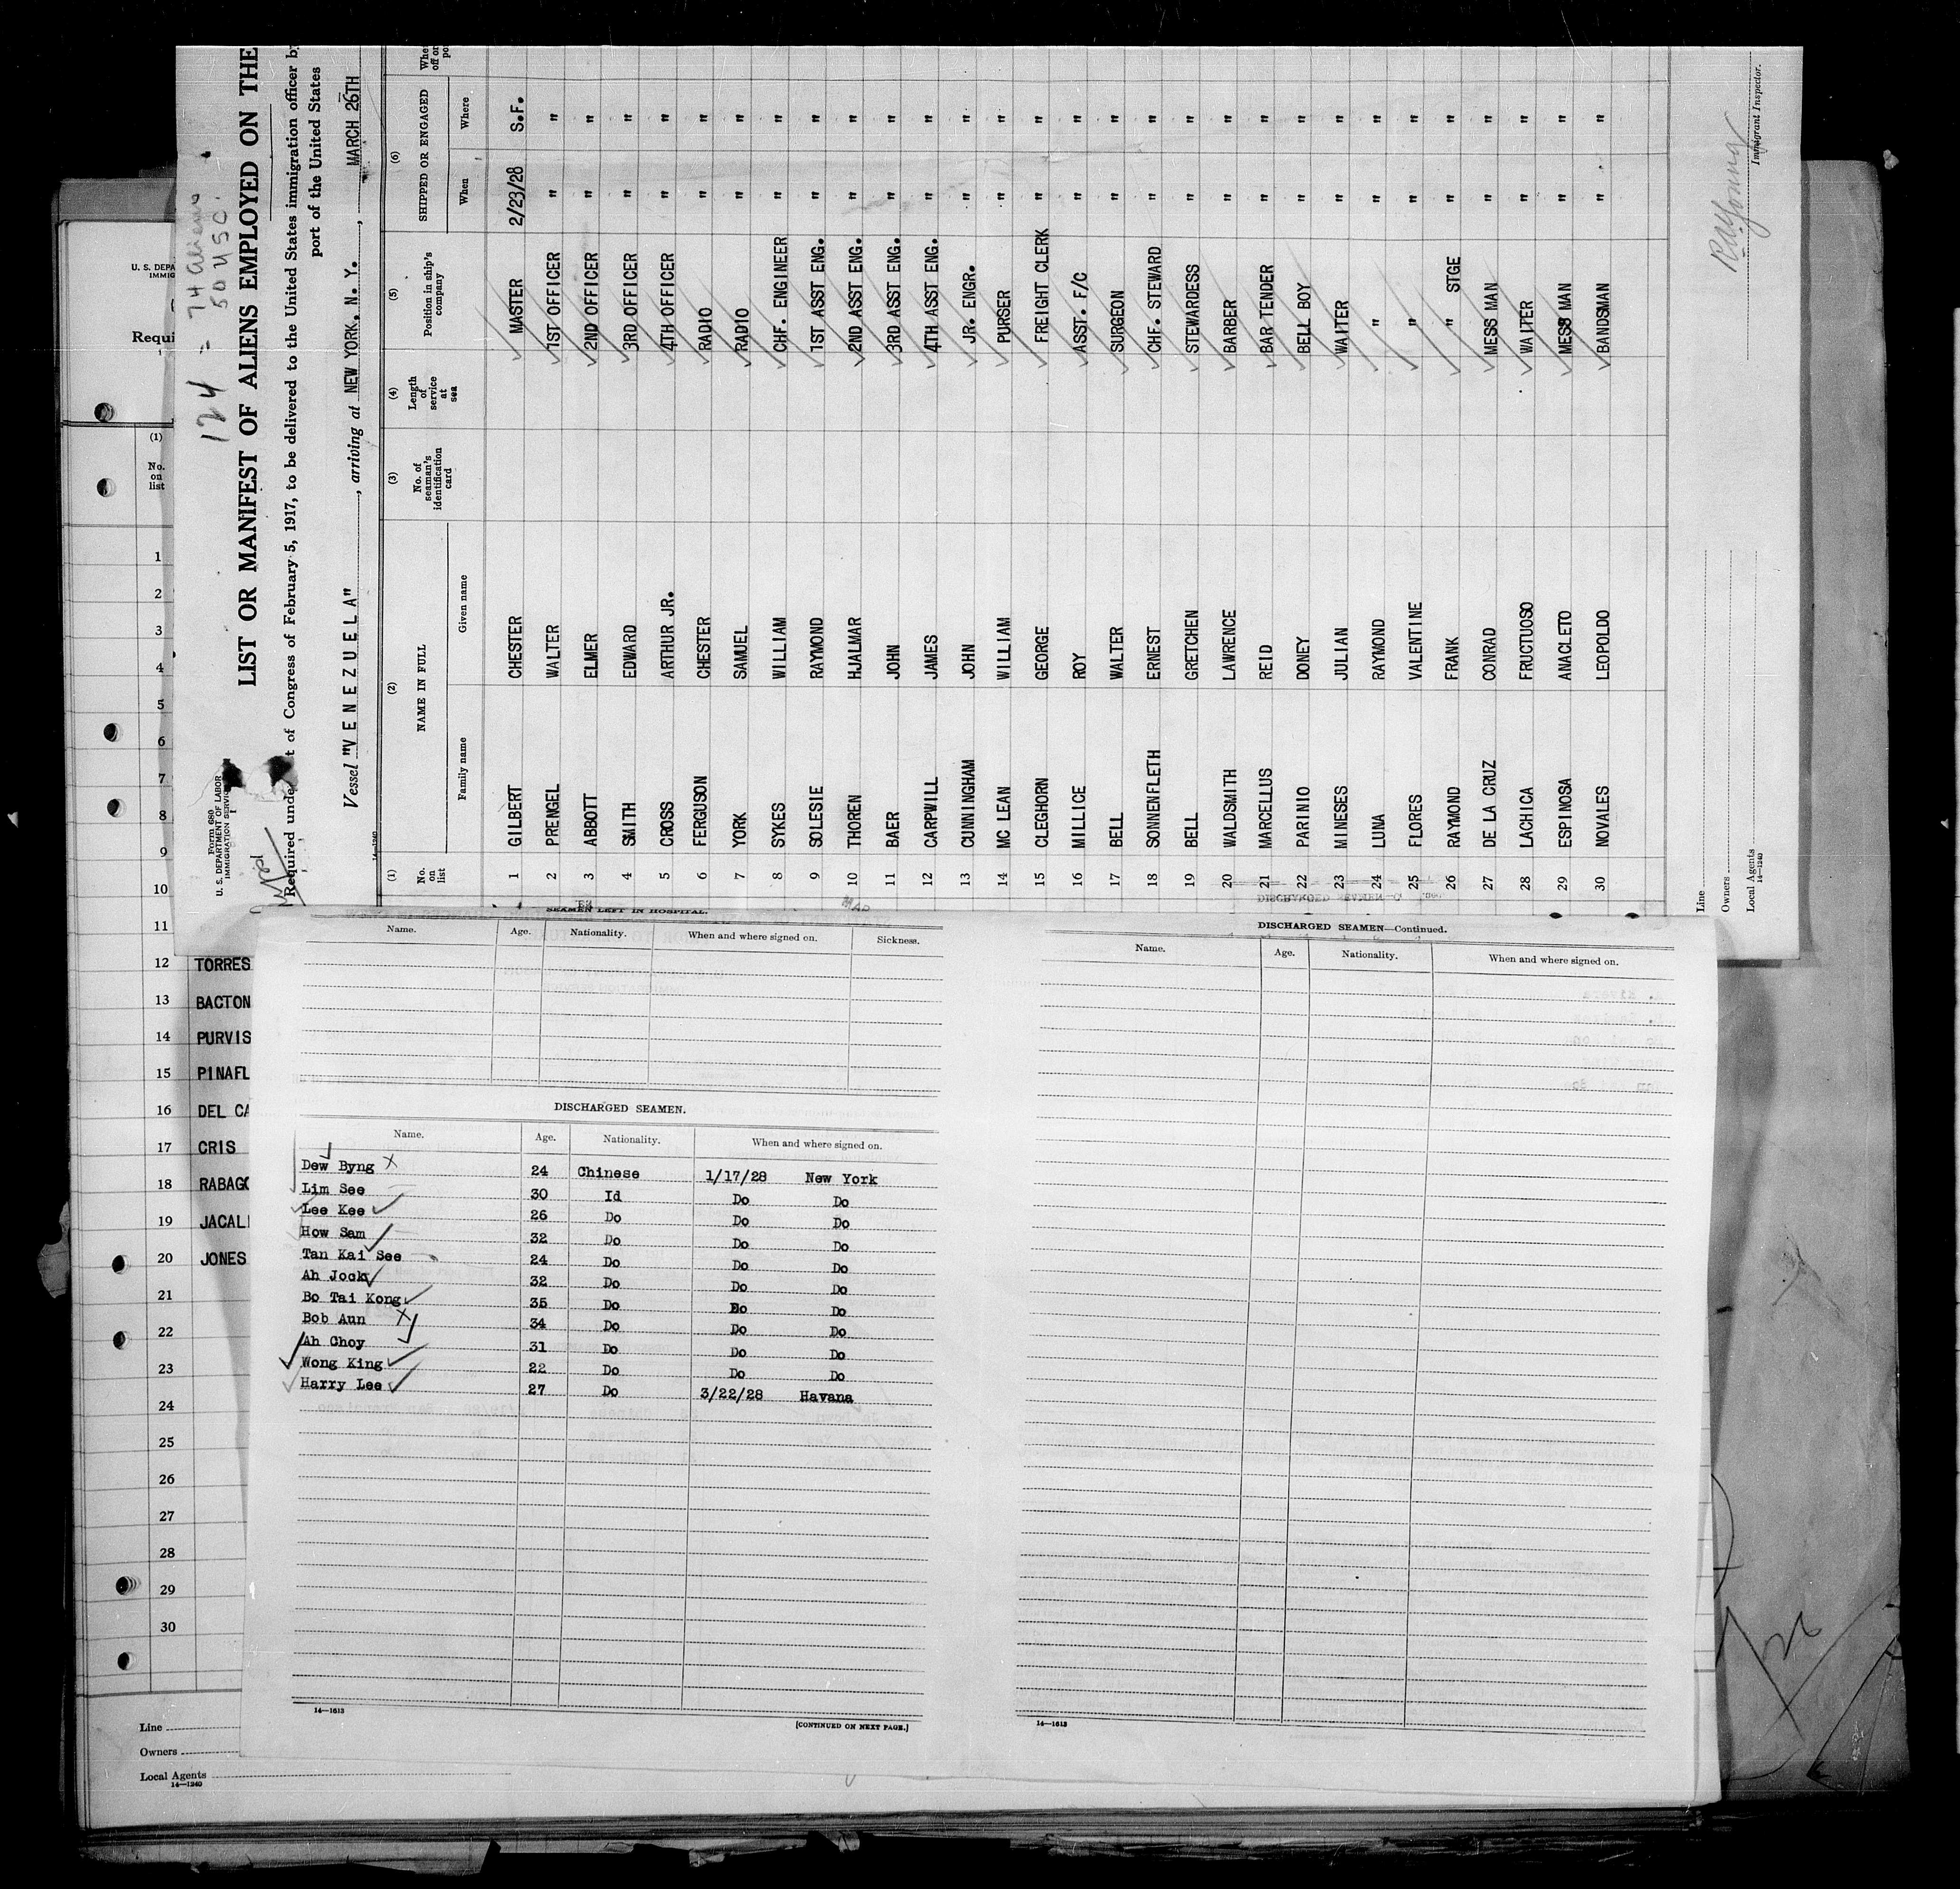 124 = 74 Aliens
50 USC.
Form 689
U. S. DEPARTMENT OF LABOR
IMMIGRATION SERVICE
LIST OR MANIFEST OF ALIENS EMPLOYED ON THE
Required under t of Congress of February 5, 1917, to be delivered to the United States immigration officer by
port of the United States
Vessel "VENEZUELA", arriving at NEW YORK, N. Y., MARCH 26TH
14—1240
(1) (2) (3) (4) (5) (6)
No. on list NAME IN FULL No. of seaman's identification card Length of service at sea Position in ship's company SHIPPED OR ENGAGED
Family name Given name When Where
1 GILBERT CHESTER MASTER 2/23/28 S.F.
2 PRENGEL WALTER 1ST OFFICER " "
3 ABBOTT ELMER 2ND OFFICER " "
4 SMITH EDWARD 3RD OFFICER " "
5 CROSS ARTHUR JR. 4TH OFFICER " "
6 FERGUSON CHESTER RADIO " "
7 YORK SAMUEL RADIO " "
8 SYKES WILLIAM CHF. ENGINEER " "
9 SOLESIE RAYMOND 1ST ASST ENG. " "
10 THOREN HJALMAR 2ND ASST ENG. " "
11 BAER JOHN 3RD ASST ENG. " "
12 CARPWILL JAMES 4TH ASST ENG. " "
13 CUNNINGHAM JOHN JR. ENGR. " "
14 MC LEAN WILLIAM PURSER " "
15 CLEGHORN GEORGE FREIGHT CLERK " "
16 MILLICE ROY ASST. F/C " "
17 BELL WALTER SURGEON " "
18 SONNENFLETH ERNEST CHF. STEWARD " "
19 BELL GRETCHEN STEWARDESS " "
20 WALDSMITH LAWRENCE BARBER " "
21 MARCELLUS REID BAR TENDER " "
22 PARINIO DONEY BELL BOY " "
23 MINESES JULIAN WAITER " "
24 LUNA RAYMOND " " "
25 FLORES VALENTINE " " "
26 RAYMOND FRANK " STGE " "
27 DE LA CRUZ CONRAD MESS MAN " "
28 LACHICA FRUCTUOSO WAITER " "
29 ESPINOSA ANACLETO MESS MAN " "
30 NOVALES LEOPOLDO BANDSMAN " "
Line
Owners
Local Agents
14—1240
Immigrant Inspector.
U. S. DEPA
IMMIG
Requi
(1)
No. on list
1
2
3
4
5
6
7
8
9
10
11
12 TORRES
13 BACTON
14 PURVIS
15 PINAFL
16 DEL CA
17 CRIS
18 RABAGO
19 JACAL
20 JONES
21
22
23
24
25
26
27
28
29
30
Line
Owners
Local Agents
14—1240
SEAMEN LEFT IN HOSPITAL.
Name. Age. Nationality. When and where signed on. Sickness.
DISCHARGED SEAMEN.
Name. Age. Nationality. When and where signed on.
Dew Byng 24 Chinese 1/17/28 New York
Lim See 30 Id Do Do
Lee Kee 26 Do Do Do
How Sam 32 Do Do Do
Tan Kai See 24 Do Do Do
Ah Jock 32 Do Do Do
Bo Tai Kong 35 Do Do Do
Bob Aun 34 Do Do Do
Ah Choy 31 Do Do Do
Wong King 22 Do Do Do
Harry Lee 27 Do 3/22/28 Havana
14—1613
[CONTINUED ON NEXT PAGE.]
DISCHARGED SEAMEN—Continued.
Name. Age. Nationality. When and where signed on.
14—1613